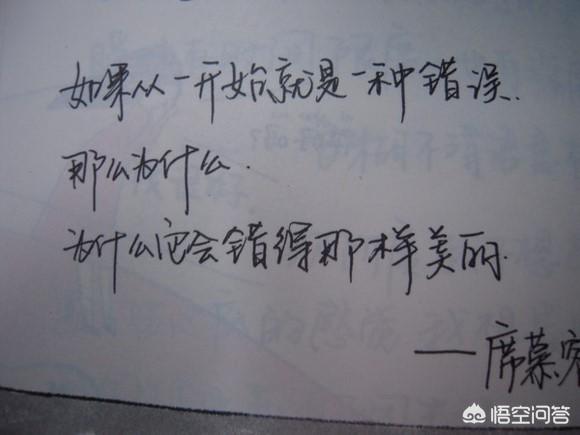 如果从一开始就是一种错误.
那么为什么.
为什么它会错得那样美丽.
——席慕容
悟空问答